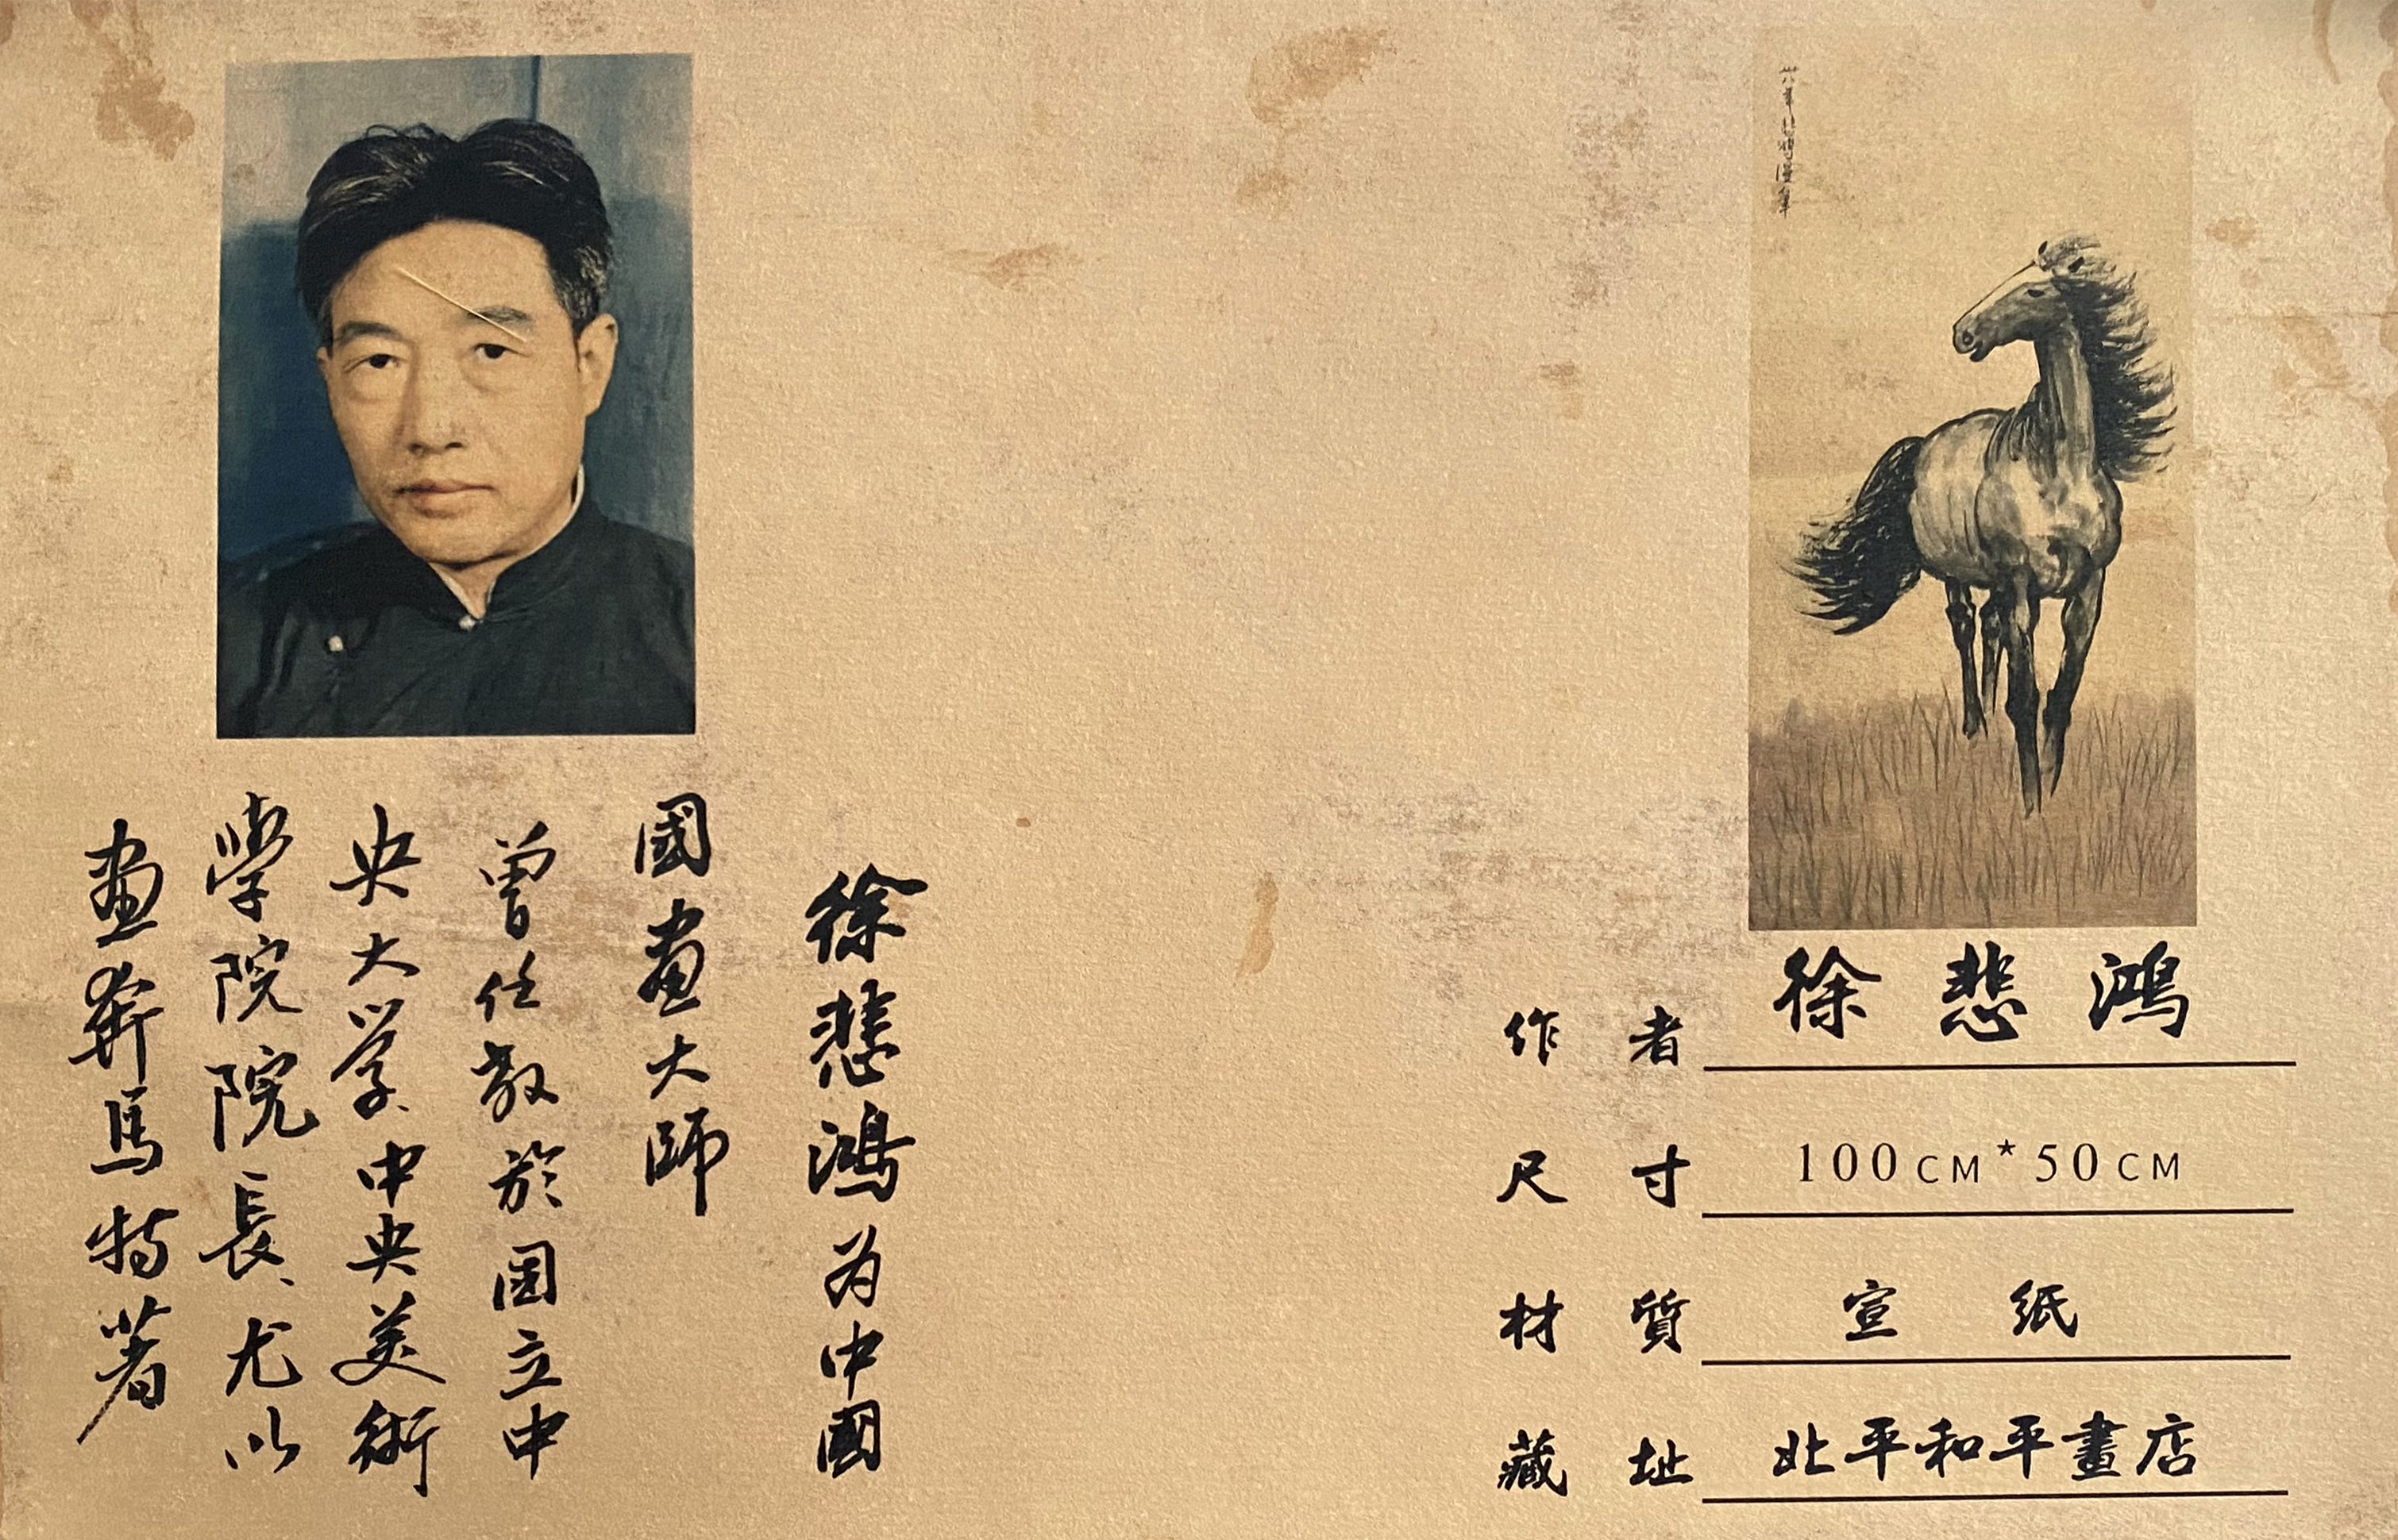 徐悲鴻为中國
國畫大師
曾任教於國立中
央大学、中央美術
學院院長、尤以
畫奔馬特著
作者 徐悲鴻
尺寸 100CM*50CM
材質 宣紙
藏址 北平和平畫店